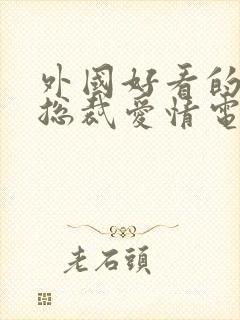 外國好看的
总裁愛情電
老石頭